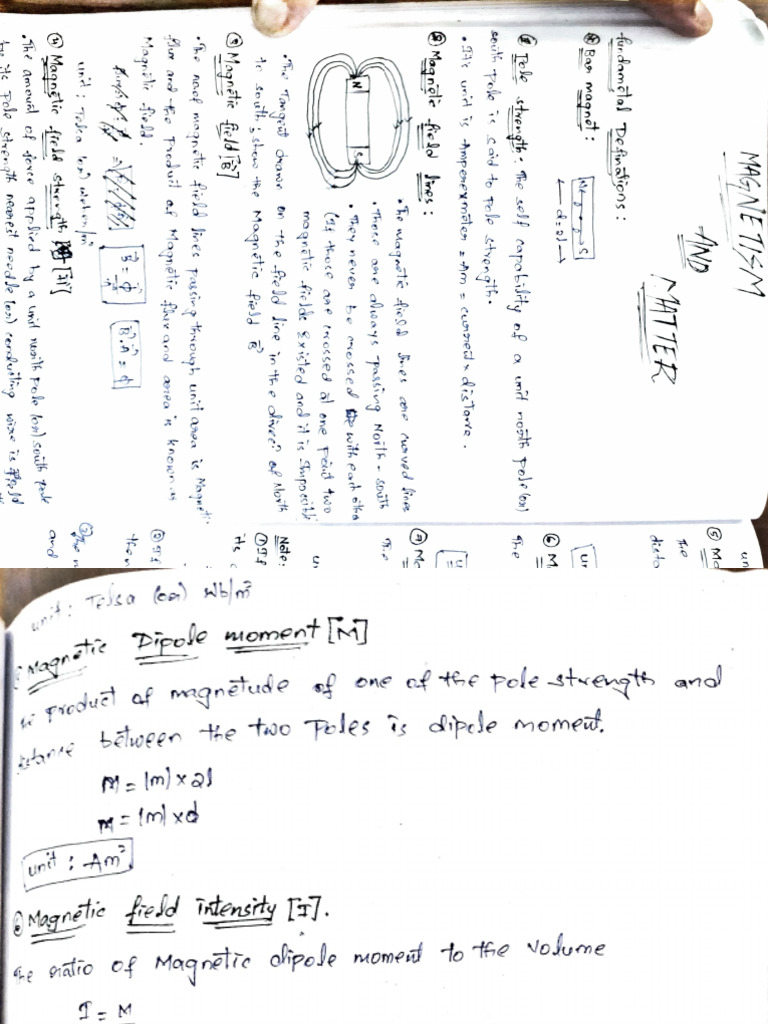 MAGNETISM
AND
MATTER
fundamental Definations :
Bar magnet :
N S
d=2l
① Pole strength : The self capability of a unit north pole (or)
south pole is said to pole strength.
• It's unit is Amperexmeter = Am = current x distance .
② Magnetic field lines :
N
S
• The magnetic field lines are curved lines
• There are always passing North - south
• They never be crossed with each other
(If those are crossed at one point two
magnetic fields Existed and it is Impossible
• The Tangent drawn on the field line in the direcⁿ of North
to south ; show the Magnetic field B⃗
③ Magnetic field [B⃗]
• The no.of magnetic field lines passing through unit area is Magnetic
flux and the product of Magnetic flux and area is known as
Magnetic field.
B⃗ = ϕ/A
B⃗.A⃗ = ϕ
unit : Tesla (or) weber/m²
④ Magnetic field strength [H]
• The amount of force applied by a unit north pole (or) south pole
by its pole strength nearest needle (or) conducting wire is field
un
⑤ Ma
The
dista
un
⑥ M
The
u
⑦ Me
The
u
Note:
① If
its
② If
the
③ The
and
unit : Telsa (or) Wb/m²
Magnetic Dipole moment [M⃗]
Product of magnetude of one of the pole strength and
distance between the two Poles is dipole moment.
M = |m| x 2l
M = |m| x d
unit : Am²
⑥ Magnetic field intensity [I].
The ratio of Magnetic dipole moment to the volume
I = M